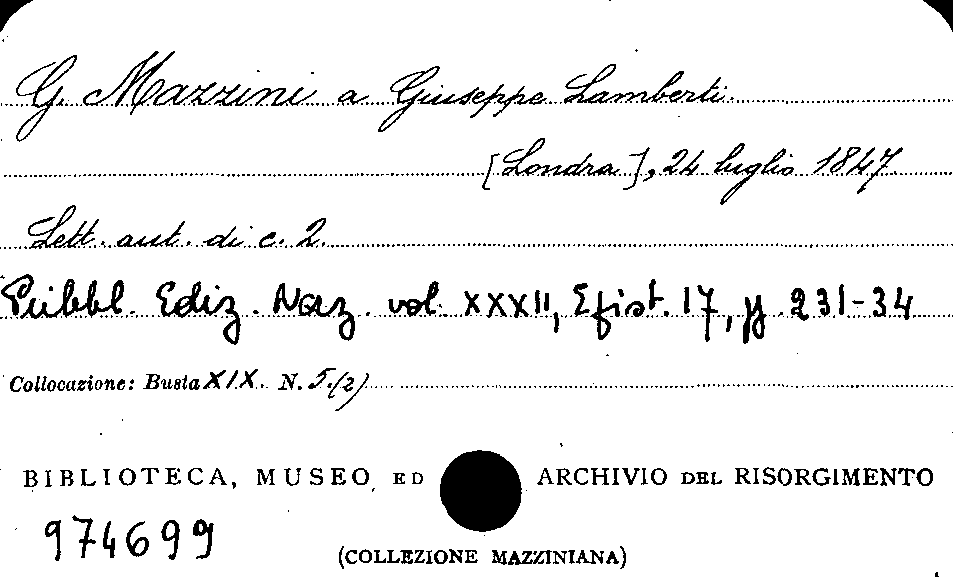 G. Mazzini a Giuseppe Lamberti.
[Londra], 24 luglio 1847
Lett. aut. di c. 2.
Pubbl. Ediz. Naz. vol. XXXII, Epist. 17, pp. 231-34
Collocazione: Busta XIX. N. 5.(2)
BIBLIOTECA, MUSEO ED ARCHIVIO DEL RISORGIMENTO
974699
(COLLEZIONE MAZZINIANA)